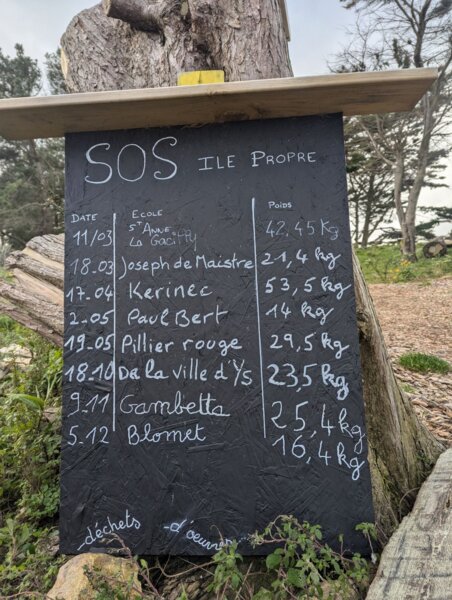 SOS ILE PROPRE
DATE ECOLE POIDS
11/03 St ANNE La Gacilly 42,45 Kg
18.03 Joseph de Maistre 21,4 kg
17.04 Kerinec 53,5 kg
2.05 Paul Bert 14 kg
19.05 Pillier rouge 29,5 kg
18.10 De la ville d'Ys 235 kg
9.11 Gambetta 25,4 kg
5.12 Blomet 16,4 kg
déchets d'oeuvres